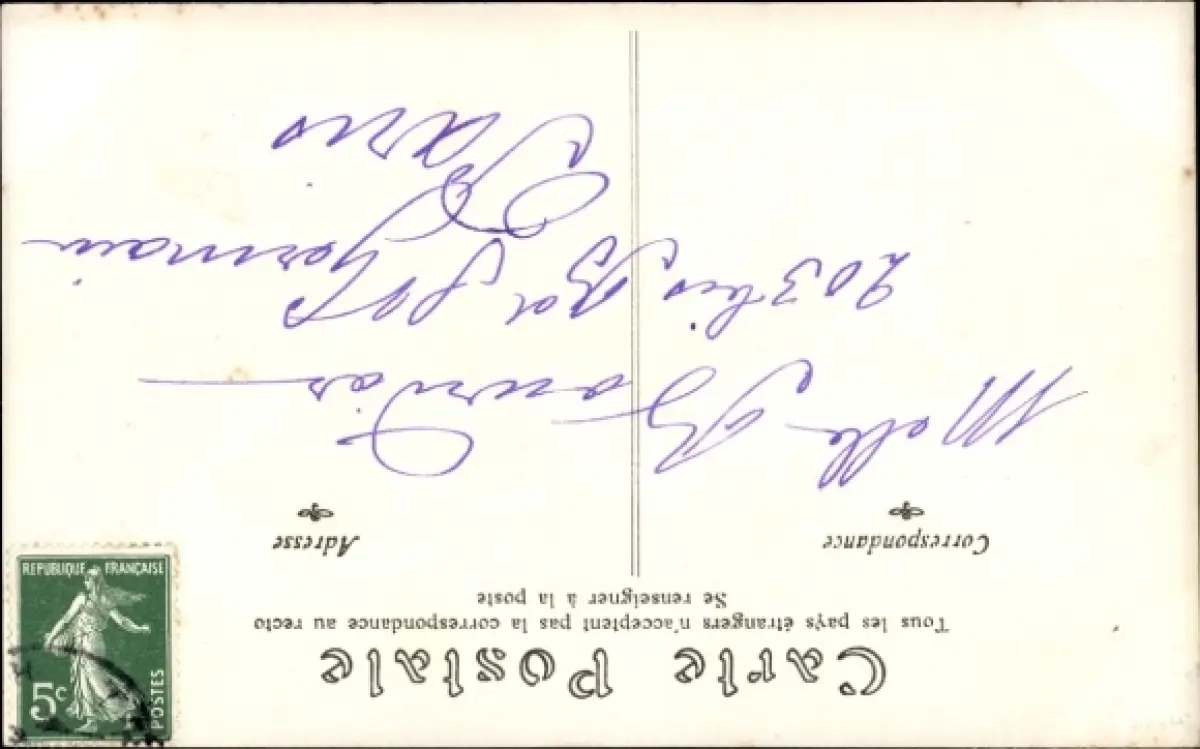 Carte Postale
Tous les pays étrangers n'acceptent pas la correspondance au recto
Se renseigner à la poste
Correspondance
Adresse
Melle B
203 bis Bd St Germain
Paris
REPUBLIQUE FRANÇAISE
5c
POSTES